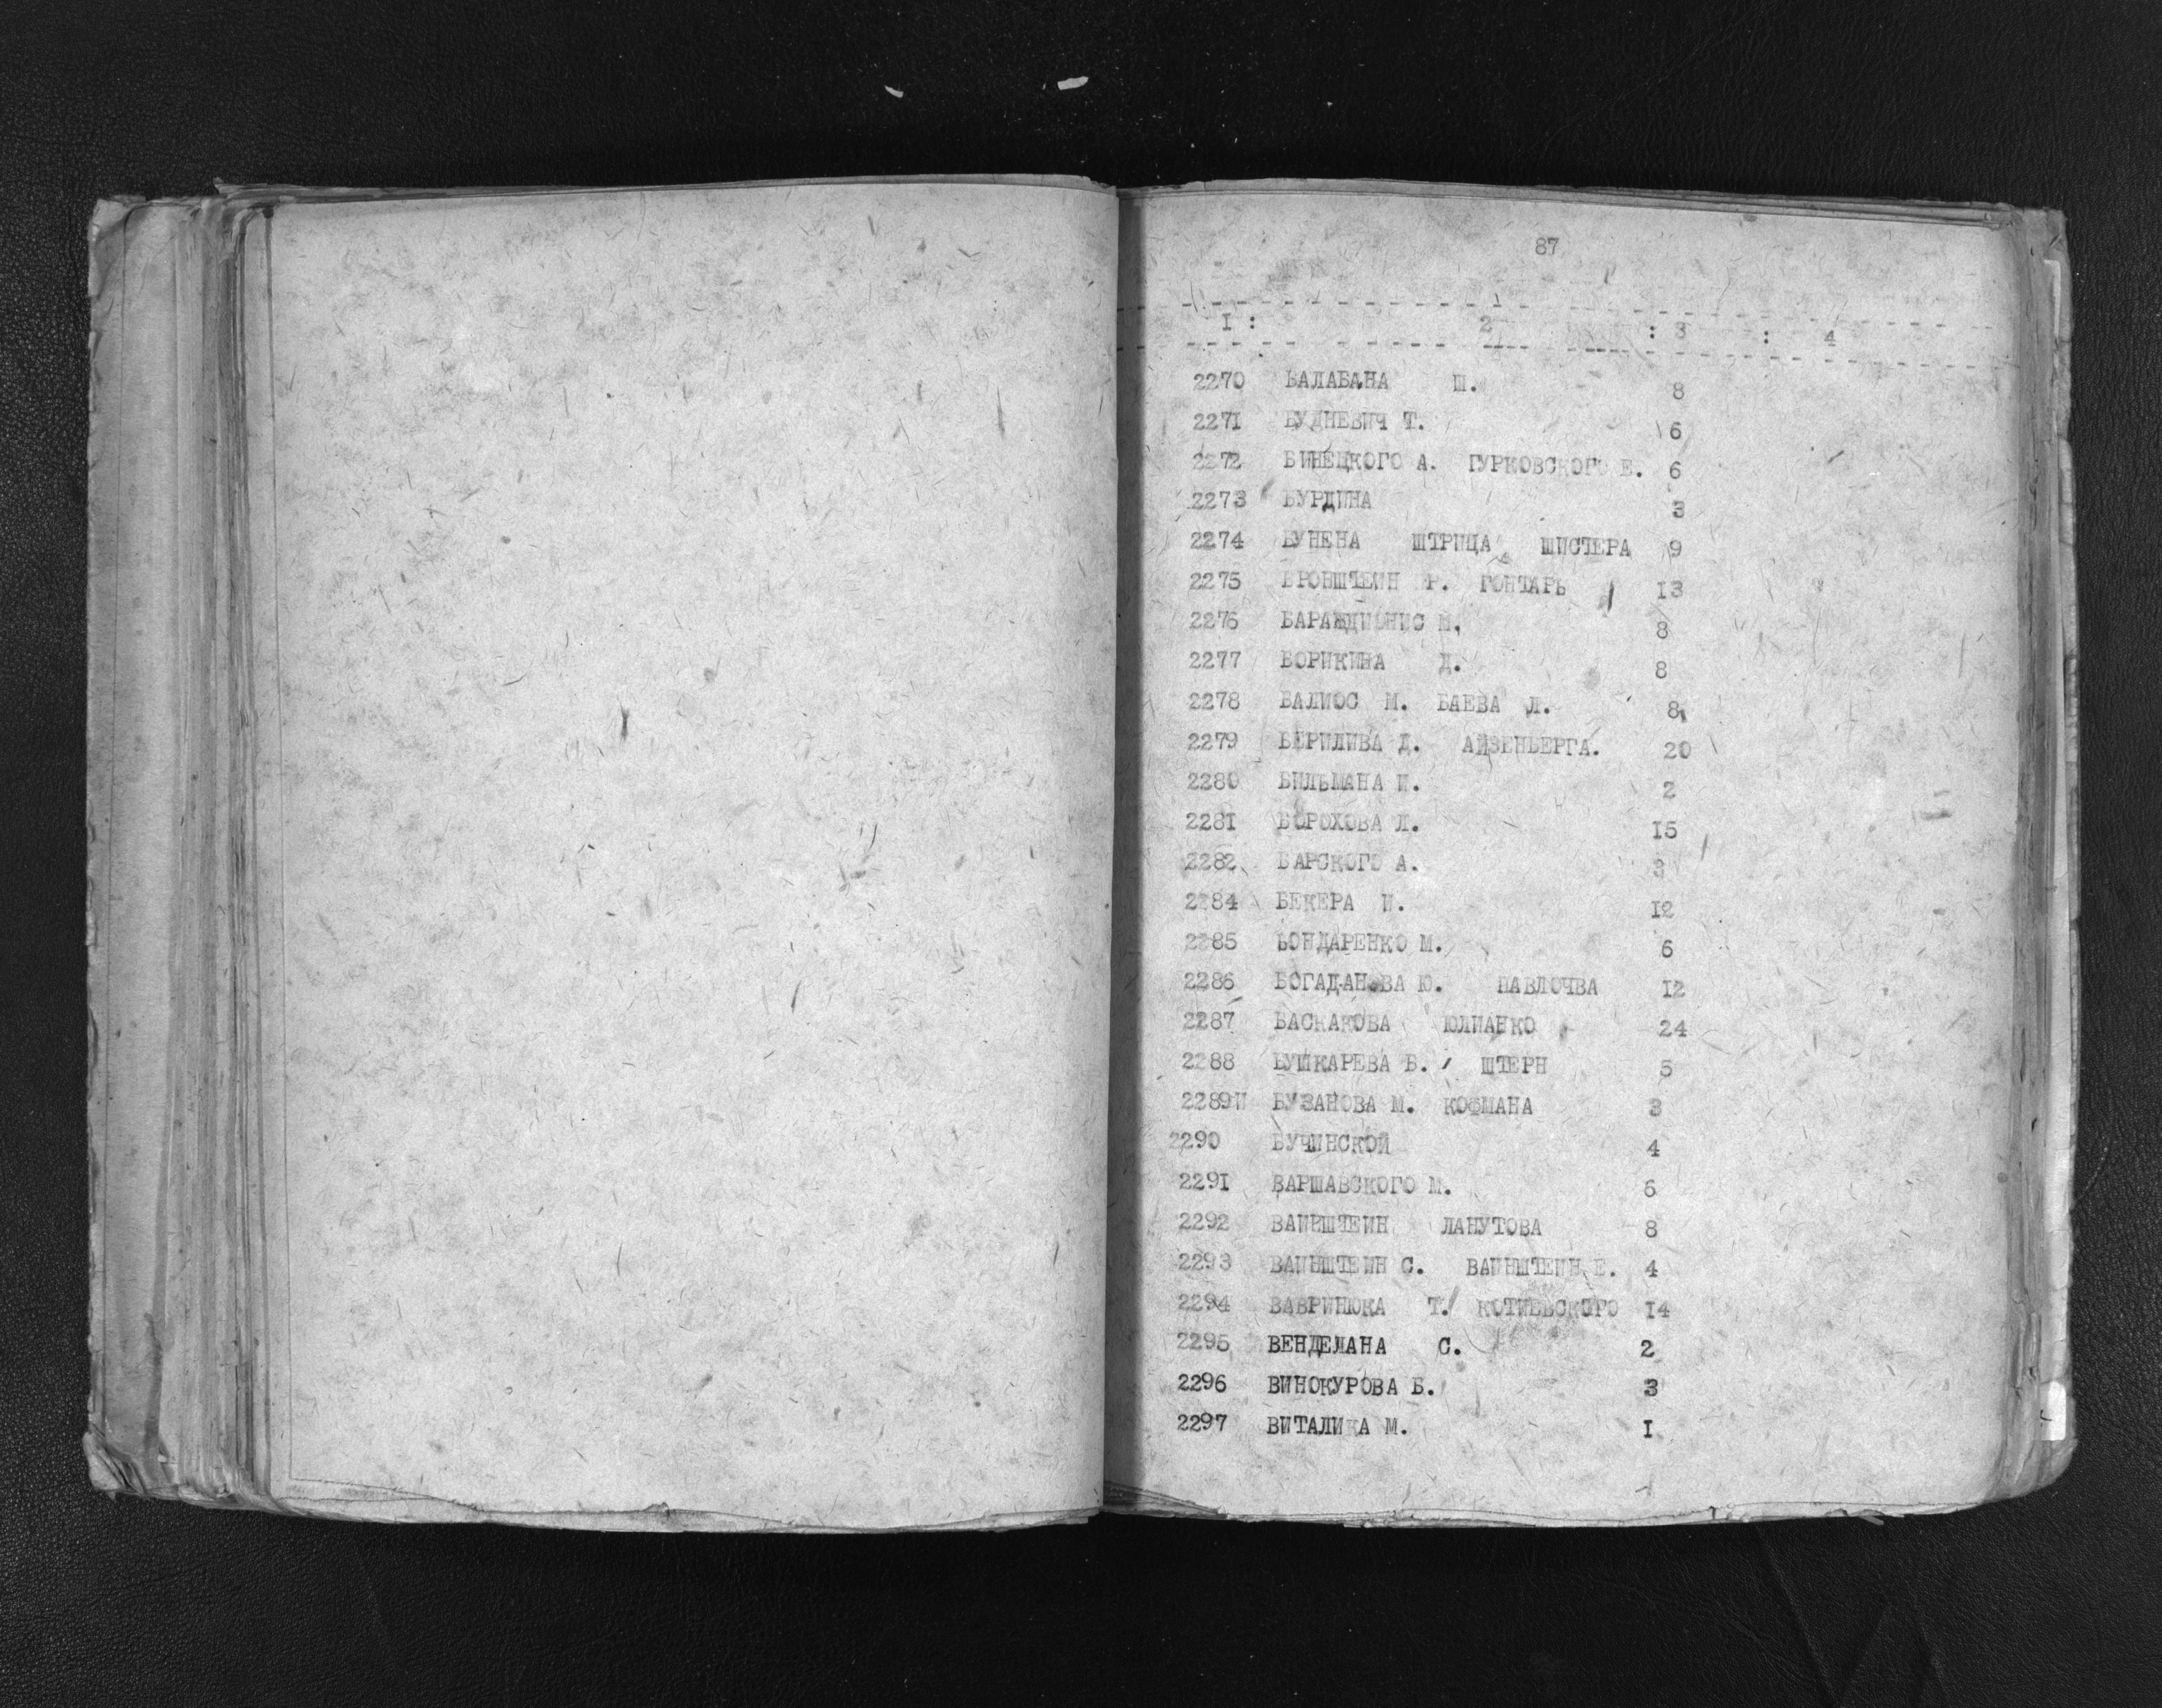 87
I : 2 : 3 : 4
2270 БАЛАБАНА Ш. 8
2271 БУДНЕВИЧ Т. 6
2272 БИНЕЦКОГО А. ГУРКОВСКОГО Е. 6
2273 БУРДИНА 3
2274 БУНЕНА ШТРИЦА ШИСТЕРА 9
2275 БРОНШТЕИН Р. ГОНТАРЬ I3
2276 М. 8
2277 БОРИКИНА Д. 8
2278 БАЛИОС М. БАЕВА Л. 8
2279 БЕРИЛИВА Д. АЙЗЕНБЕРГА. 20
2280 БИЛЬМАНА И. 2
2281 БОРОХОВА Л. I5
2282 БАРСКОГО А. 3
2284 БЕКЕРА И. I2
2285 БОНДАРЕНКО М. 6
2286 БОГАДАНОВА Ю. ПАВЛОЧВА I2
2287 БАСКАКОВА ЮЛИАНКО 24
2288 БУШКАРЕВА Б. ШТЕРН 5
2289 БУЗАНОВА М. КОФМАНА 3
2290 БУЧИНСКОЙ 4
229I ВАРШАВСКОГО М. 6
2292 ВАИНШТЕИН ЛАНУТОВА 8
2293 ВАИНШТЕИН С. ВАИНШТЕИН Е. 4
2294 ВАВРИНЮКА Т. КОТИЕВСКОГО I4
2295 ВЕНДЕЛАНА С. 2
2296 ВИНОКУРОВА Б. 3
2297 ВИТАЛИКА М. I